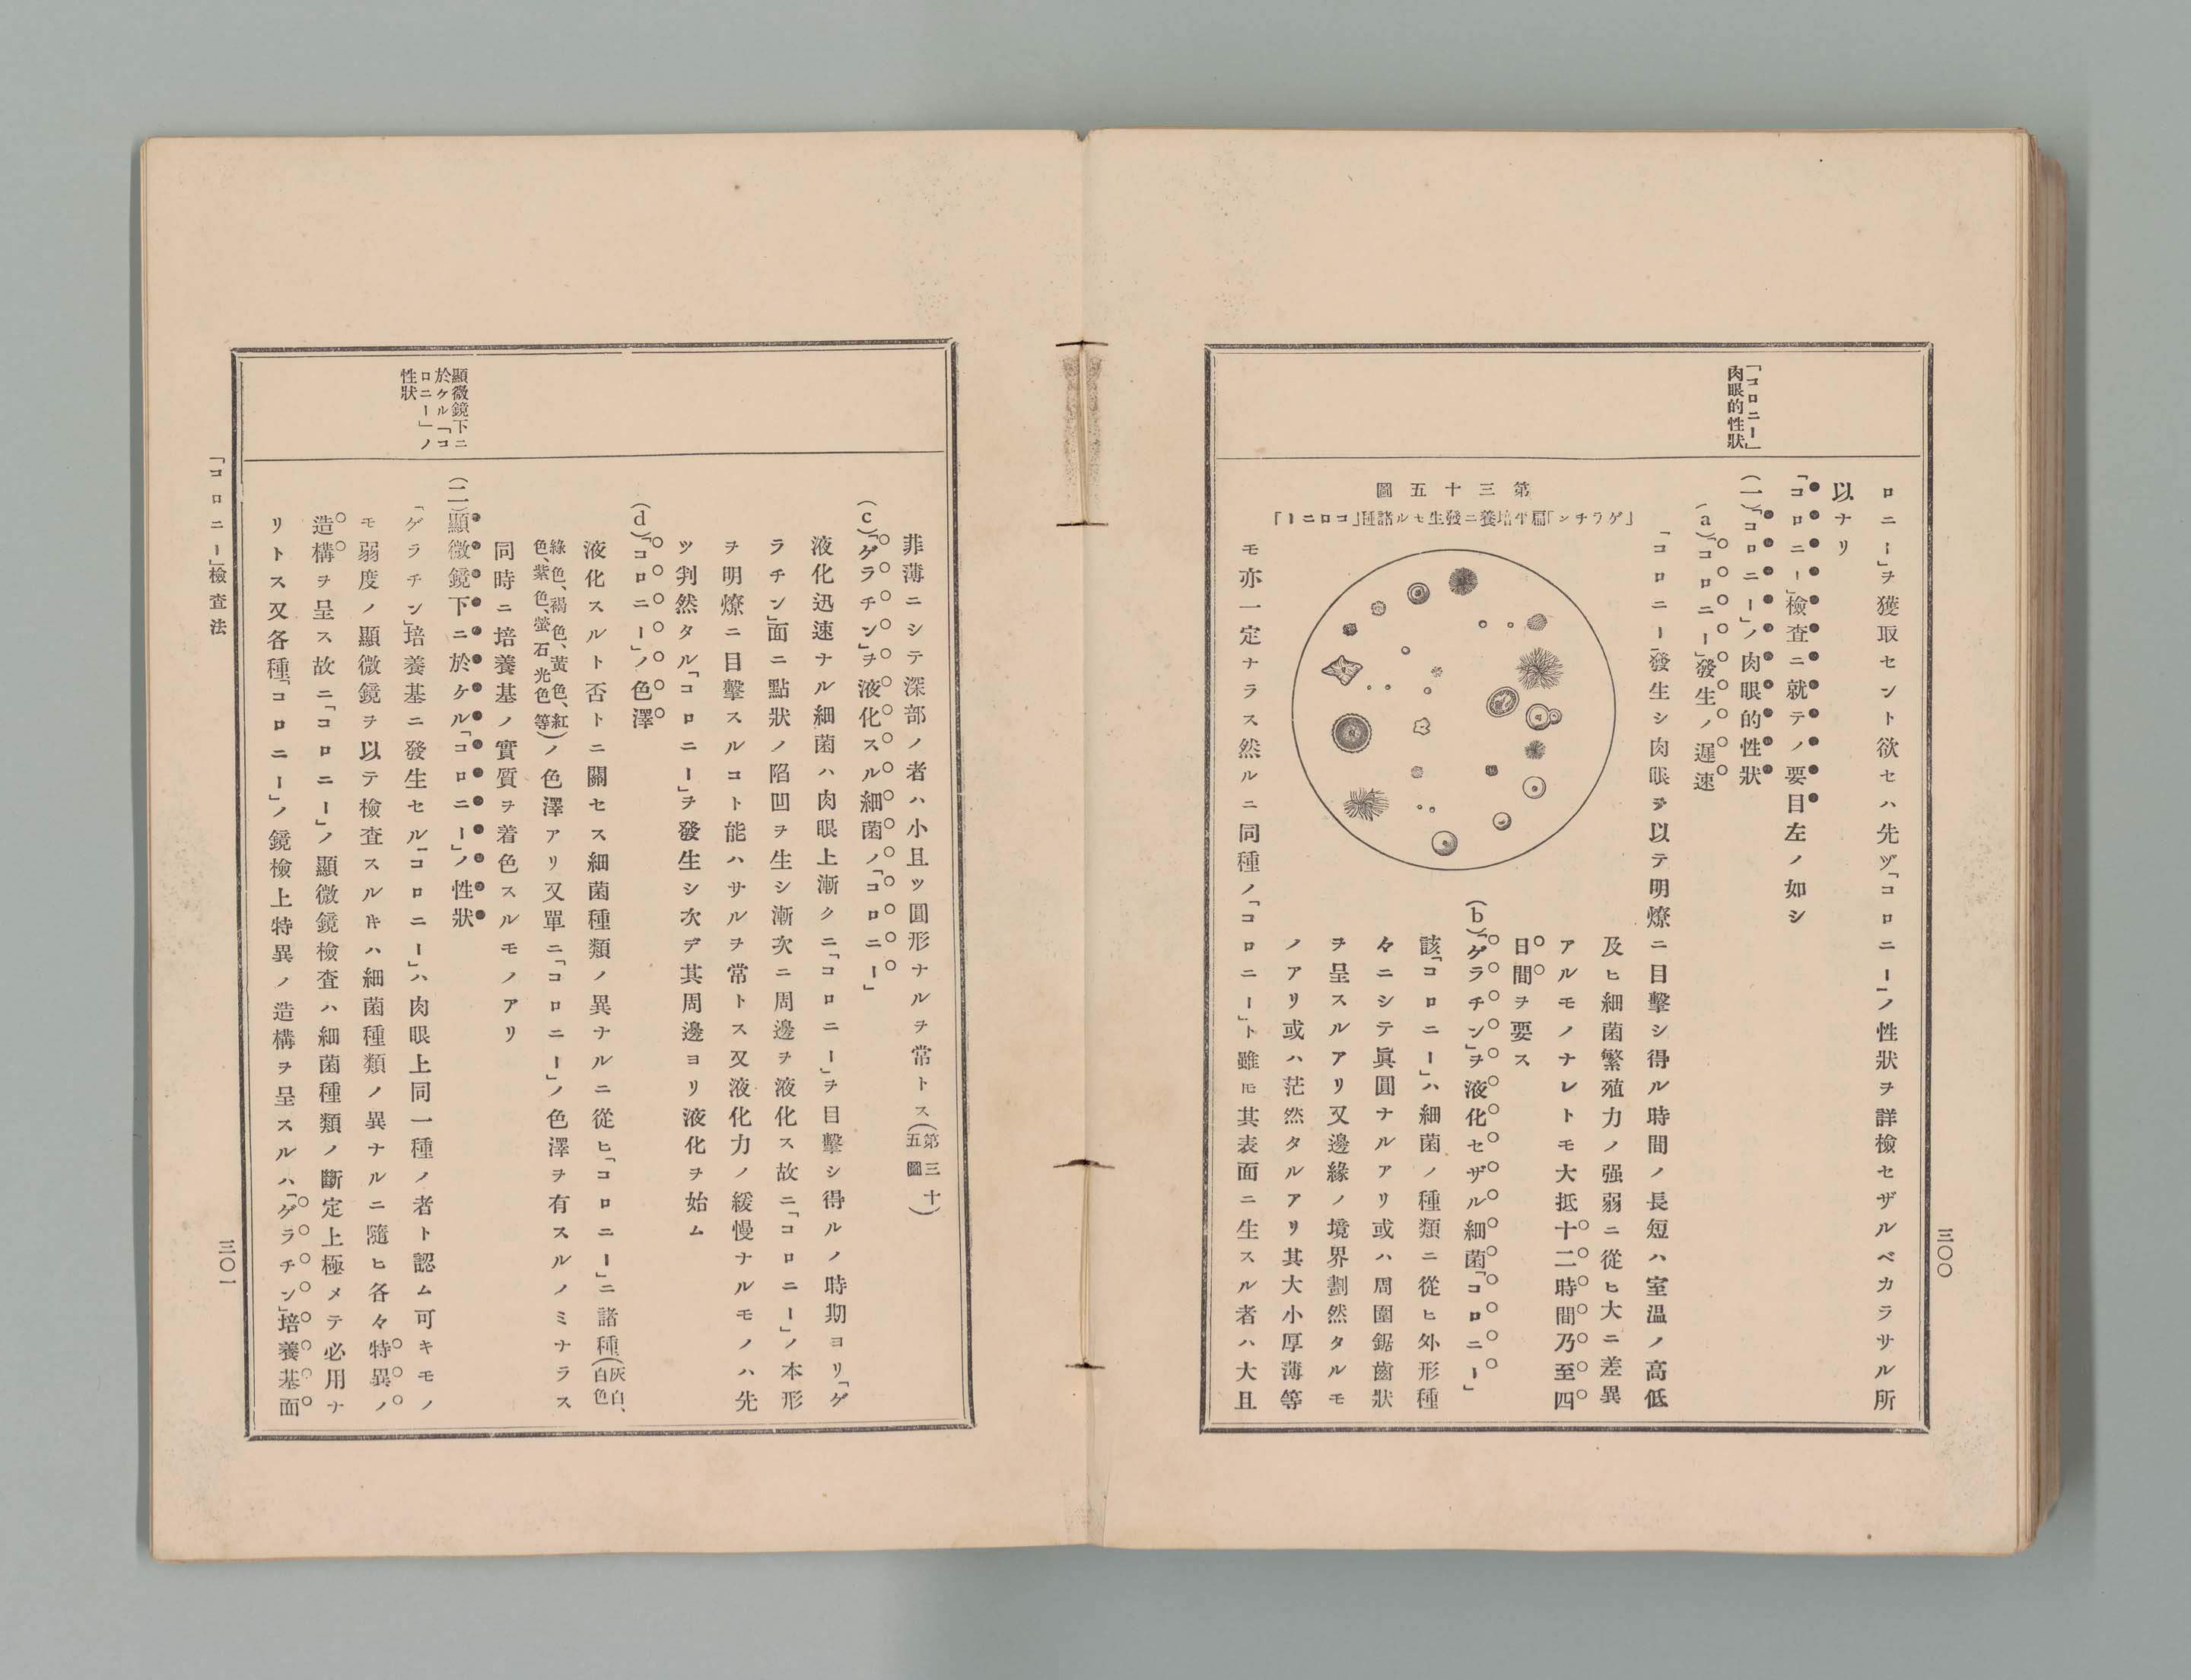 「コロニー」
肉眼的性狀
ロニー」ヲ獲取セント欲セハ先ヅ「コロニー」ノ性狀ヲ詳檢セザルベカラサル所
以ナリ
「コロニー」檢査ニ就テノ要目左ノ如シ
(一)「コロニー」ノ肉眼的性狀
(a)「コロニー」發生ノ遲速
「コロニー」發生シ肉眼ヲ以テ明燎ニ目擊シ得ル時間ノ長短ハ室溫ノ高低
及ヒ細菌繁殖力ノ强弱ニ從ヒ大ニ差異
アルモノナレトモ大抵十二時間乃至四
日間ヲ要ス
(b)「ゲラチン」ヲ液化セザル細菌「コロニー」
該「コロニー」ハ細菌ノ種類ニ從ヒ外形種
々ニシテ眞圓ナルアリ或ハ周圍鋸齒狀
ヲ呈スルアリ又邊緣ノ境界劃然タルモ
ノアリ或ハ茫然タルアリ其大小厚薄等
第三十五圖
「ゲラチン」扁平培養ニ發生セル諸種「コロニー」
モ亦一定ナラス然ルニ同種ノ「コロニー」ト雖モ其表面ニ生スル者ハ大且
三〇〇
顯微鏡下ニ
於ケル「コ
ロニー」ノ
性狀
菲薄ニシテ深部ノ者ハ小且ツ圓形ナルヲ常トス(第三十五圖)
(c)「ゲラチン」ヲ液化スル細菌ノ「コロニー」
液化迅速ナル細菌ハ肉眼上漸クニ「コロニー」ヲ目擊シ得ルノ時期ヨリ「ゲ
ラチン」面ニ點狀ノ陷凹ヲ生シ漸次ニ周邊ヲ液化ス故ニ「コロニー」ノ本形
ヲ明燎ニ目擊スルコト能ハサルヲ常トス又液化力ノ緩慢ナルモノハ先
ツ判然タル「コロニー」ヲ發生シ次デ其周邊ヨリ液化ヲ始ム
(d)「コロニー」ノ色澤
液化スルト否トニ關セス細菌種類ノ異ナルニ從ヒ「コロニー」ニ諸種(灰白、白色
綠色、褐色、黃色、紅色、紫色、螢石光色等)ノ色澤アリ又單ニ「コロニー」ノ色澤ヲ有スルノミナラス
同時ニ培養基ノ實質ヲ着色スルモノアリ
(二)顯微鏡下ニ於ケル「コロニー」ノ性狀
「ゲラチン」培養基ニ發生セル「コロニー」ハ肉眼上同一種ノ者ト認ム可キモノ
モ弱度ノ顯微鏡ヲ以テ檢査スルキハ細菌種類ノ異ナルニ隨ヒ各々特異ノ
造構ヲ呈ス故ニ「コロニー」ノ顯微鏡檢査ハ細菌種類ノ斷定上極メテ必用ナ
リトス又各種「コロニー」ノ鏡檢上特異ノ造構ヲ呈スルハ「ゲラチン」培養基面
「コロニー」檢査法
三〇一